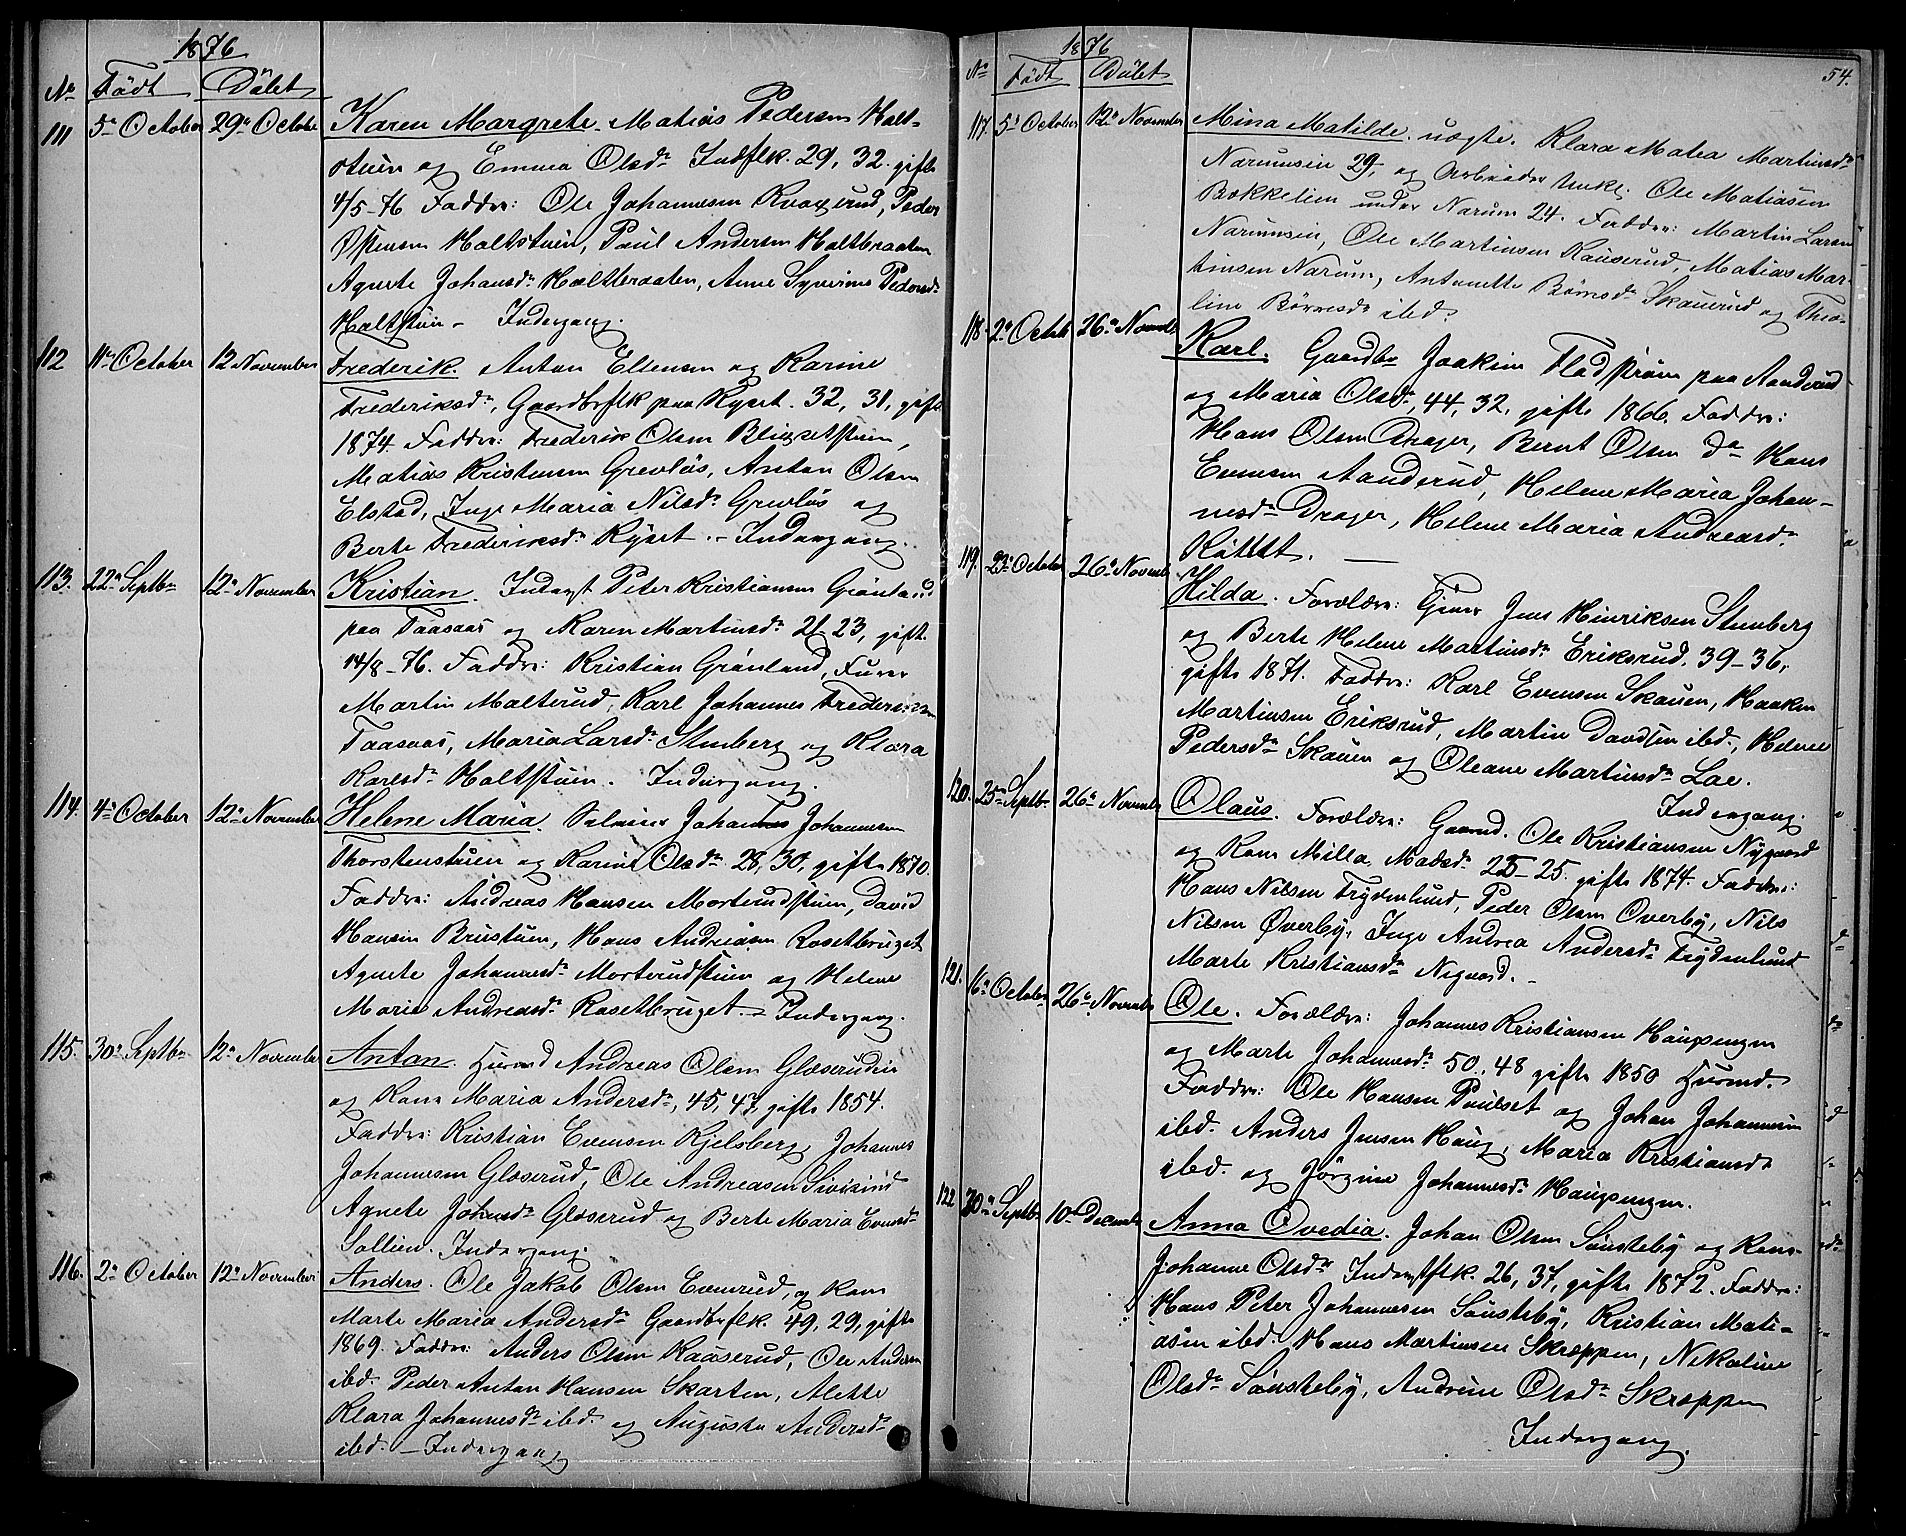 1876
No Födt Döbt
111 5te October 29de October Karen Margrete. Matias Pedersen Halt-
stuen og Emma Olsdr Indflk. 29, 32. gifte
4/5-76 Faddre: Ole Johannesen Kvaxerud, Peder
Haltstuen, Paul Andersen Haltbraaten
Agnete Johansdr Haltbraaten, Anne Syverine Pedersdr
Haltstuen - Indergang.
112 11te October 12 November Frederik. Anton Ellensen og Karine
Frederiksdr, Gaardbrflk paa Kyset. 32, 31, gift
1874. Faddre: Frederik Olsen Blixetstuen,
Matias Kristensen Grevlös, Anton Olsen
Elstad, Inge Maria Nilsdr Grevlös og
Berte Frederiksdr Kyset. - Indergang.
113. 22de Septbr 12te November Kristian. Inderst Peter Kristiansen Grönland
paa Taasaas og Karen Martinsdr 21 23, gift
14/8-76. Faddre: Kristian Grönland, Furer
Martin Malterud, Karl Johannes Fredriksen
Taasaas, Maria Larsdr Stenberg og Klara
Karlsdr Haltstuen. Indergang.
114. 4de October 12te November Helene Maria. Selveier Johannes Johannesen
Thorstenstuen og Karine Olsdr 28, 30, gifte 1870.
Faddre: Andreas Hansen Morterudstuen, David
Hansen Brustuen, Hans Andreasen Rosetbruget
Agnete Johannesdr Morterudstuen og Helene
Marie Andreasdr Rosetbruget. - Indergang.
115. 30te Septbr 12te November Anton. Husmd Andreas Olsen Glæserudeie
og Kone Maria Andersdr, 45, 47, gifte 1854.
Faddre: Kristian Evensen Kjelsberg, Johannes
Johannesen Glæserud, Ole Andreasen Sivesind
Agnete Johnsdr Glæserud og Berte Maria Evensdr
Sollien. Indergang.
116. 2de October 12te November Anders. Ole Jakob Olsen Evenrud, og Kone
Marte Maria Andersdr Gaardbrflk. 49, 29, gifte
1869. Faddre: Anders Olsen Kaaserud, Ole Andersen
ibd. Peder Anton Hansen Skarten, Alette
Klara Johannesdr ibd. og Augusta Andersdr
ibd. - Indergang
54.
1876
No Födt Döbt
117. 5te October 12te November Mina Matilde. uægte. Klara Matea Martinsdr
Narumseie 29, og Arbeider Unkl. Ole Matiasen
Bækkelien under Narum 24. Faddre: Martin Larsen
Narumseie, Ole Martinsen Kauserud, Matias Mar-
tinsen Narum, Antonette Börresdr Skauerud og Theo-
line Börresdr ibd.
118. 2de Octob 26de Novembr Karl. Gaardbr Joakim Fladström paa Aanderud
og Maria Olsdr, 44, 32, gifte 1866. Faddre:
Hans Olsen Drager, Bernt Olsen do Hans
Evensen Aanderud, Helene Maria Johan-
nesdr Drager, Helene Maria Andreasdr
119. 23de October 26de Novemb Hilda. Forældre: Tjener Jens Hinriksen Stenberg
og Berte Helene Martinsdr Eriksrud. 39-36,
gifte 1871. Faddre: Karl Evensen Skauen, Haaken
Martinsen Eriksrud, Martin Davidsen ibd., Helene
Pedersdr Skauen og Oleane Martinsdr Lae.
Indergang.
120. 25de Septbr. 26de November Olaus. Forældre: Gaarmd. Ole Kristiansen Nygaard
og Kone Milla Madsdr 25-25. gifte 1874. Faddre:
Hans Nilsen Frydenlund, Peder Olsen Overby, Nils
Nilsen Överby, Inge Andrea Andersdr Frydenlund
Marte Kristiansdr Nygaard. -
121. 16de October 26de November Ole. Forældre: Johannes Kristiansen Haugsengen
og Marte Johannesdr 50, 48 gifte 1850 Husmd.
Faddre: Ole Hansen Paulset og Johan Johannesen
ibd. Anders Jensen Haug, Maria Kristiansdr
ibd. og Jörgine Johannesdr Haugsengen.
122 30te Septbr. 10de Decembr Anna Ovedia. Johan Olsen Sönsteby og Kone
Johanne Olsdr Inderstflk. 26, 37, gifte 1872. Faddre:
Hans Peter Johannesen Sönsteby, Kristian Mati-
asen ibd. Hans Martinsen Skræppen, Nikoline
Olsdr Sönsteby, Andrine Olsdr Skræppen
Indergang.